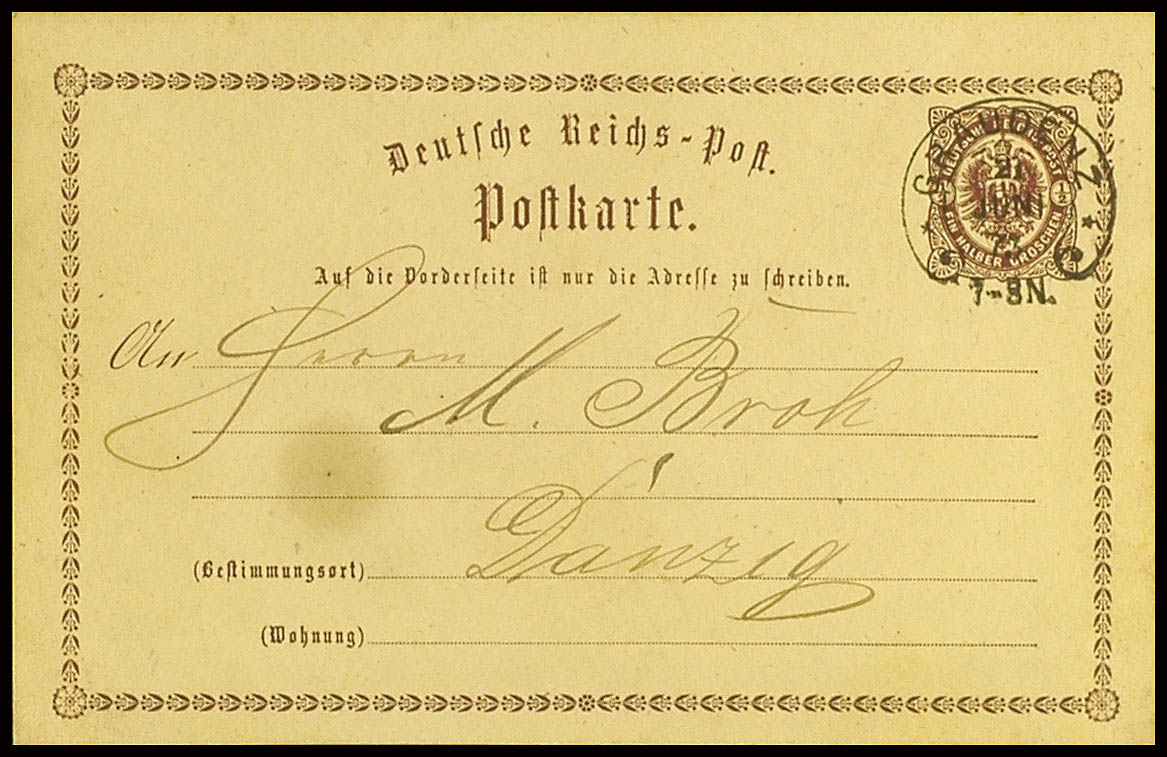 Deutsche Reichs-Post.
Postkarte.
Auf die Vorderseite ist nur die Adresse zu schreiben.
DEUTSCHE REICHS-POST
½ ½
EIN HALBER GROSCHEN
GRAUDENZ
21
JUNI
7-8N.
An Herrn
M. Broh
Danzig
(Bestimmungsort)
(Wohnung)